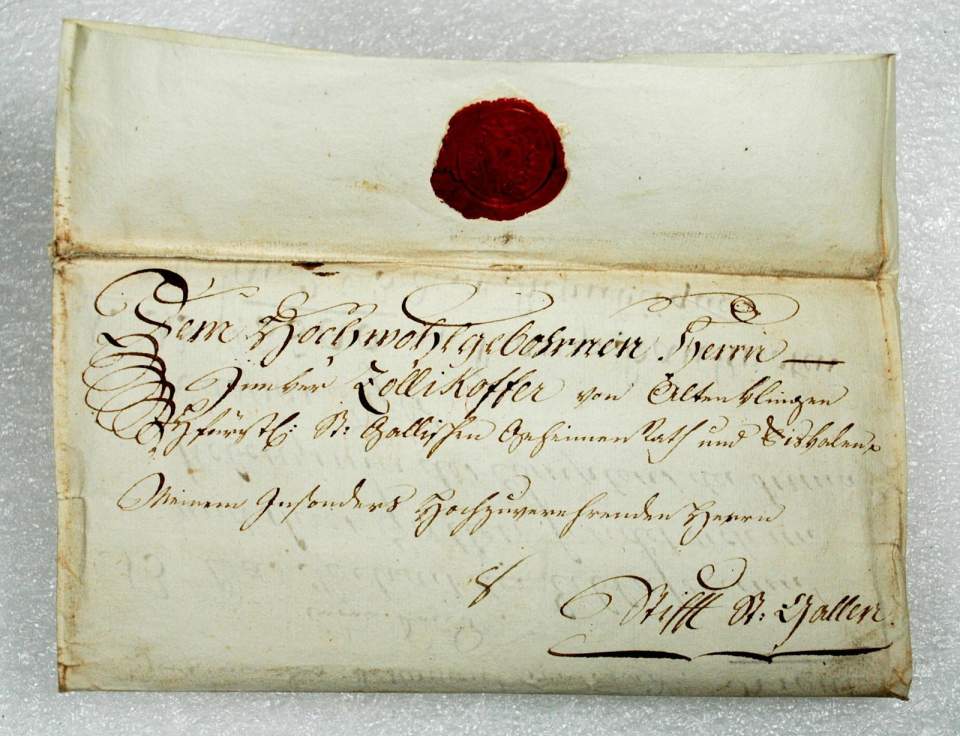 Dem Hochwohlgebohrnen Herrn
Junker Zollikoffer von Altenklingen
Hfürstl: St: Gallischen Geheimen Rath und Fiskalen
Meinem Insonders Hochzuverehrenden Herrn
Stifft St: Gallen.